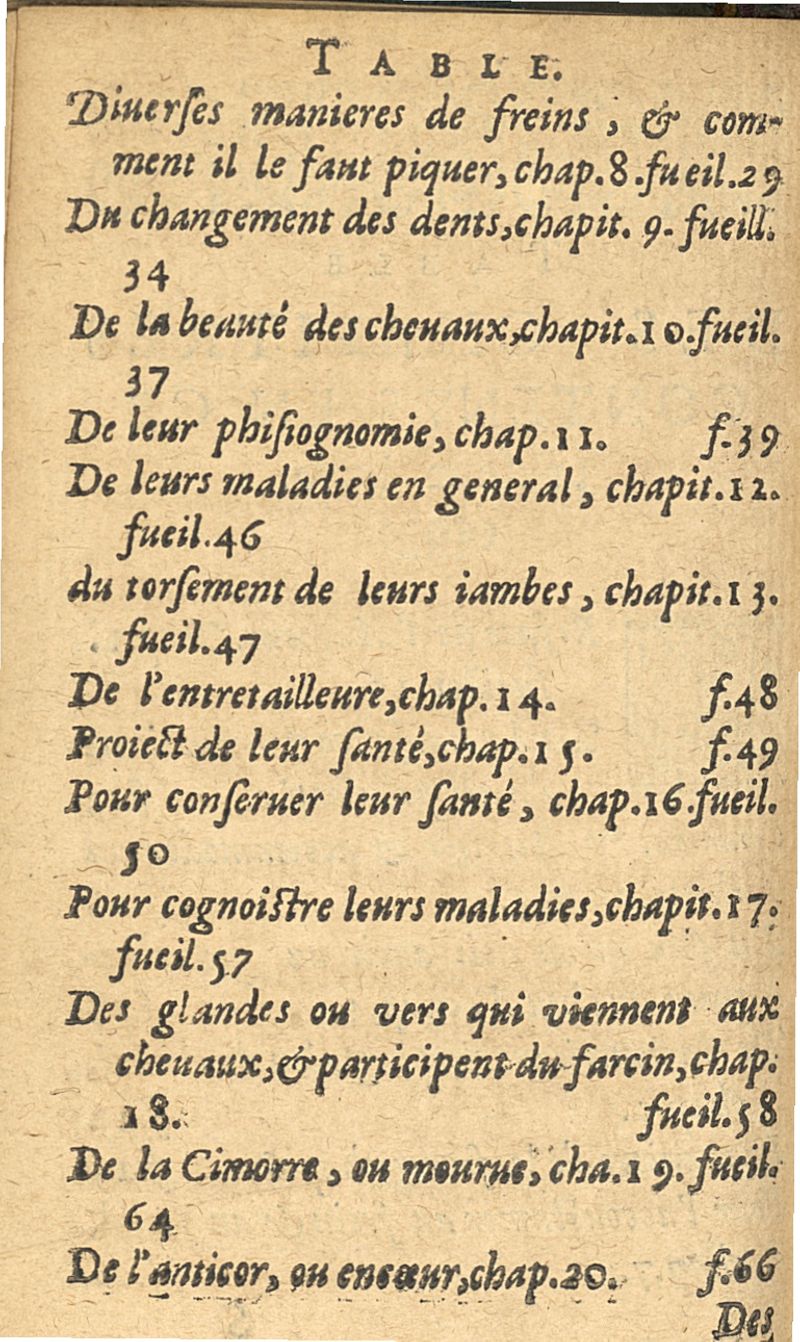 TABLE.
Diuerſes manieres de freins, & com-
ment il le faut piquer, chap.8.fueil.29
Du changement des dents, chapit. 9. fueill.
34
De la beauté des cheuaux, chapit.10.fueil.
37
De leur phiſiognomie, chap.11. f.39
De leurs maladies en general, chapit.12.
fueil.46
du torſement de leurs iambes, chapit.13.
fueil.47
De l'entretailleure, chap.14. f.48
Proiect de leur ſanté, chap.15. f.49
Pour conſeruer leur ſanté, chap.16.fueil.
50
Pour cognoiſtre leurs maladies, chapit.17.
fueil.57
Des glandes ou vers qui viennent aux
cheuaux, & participent du farcin, chap.
18. fueil.58
De la Cimorre, ou mourue, cha.19. fueil.
64
De l'anticor, ou encœur, chap.20. f.66
Des